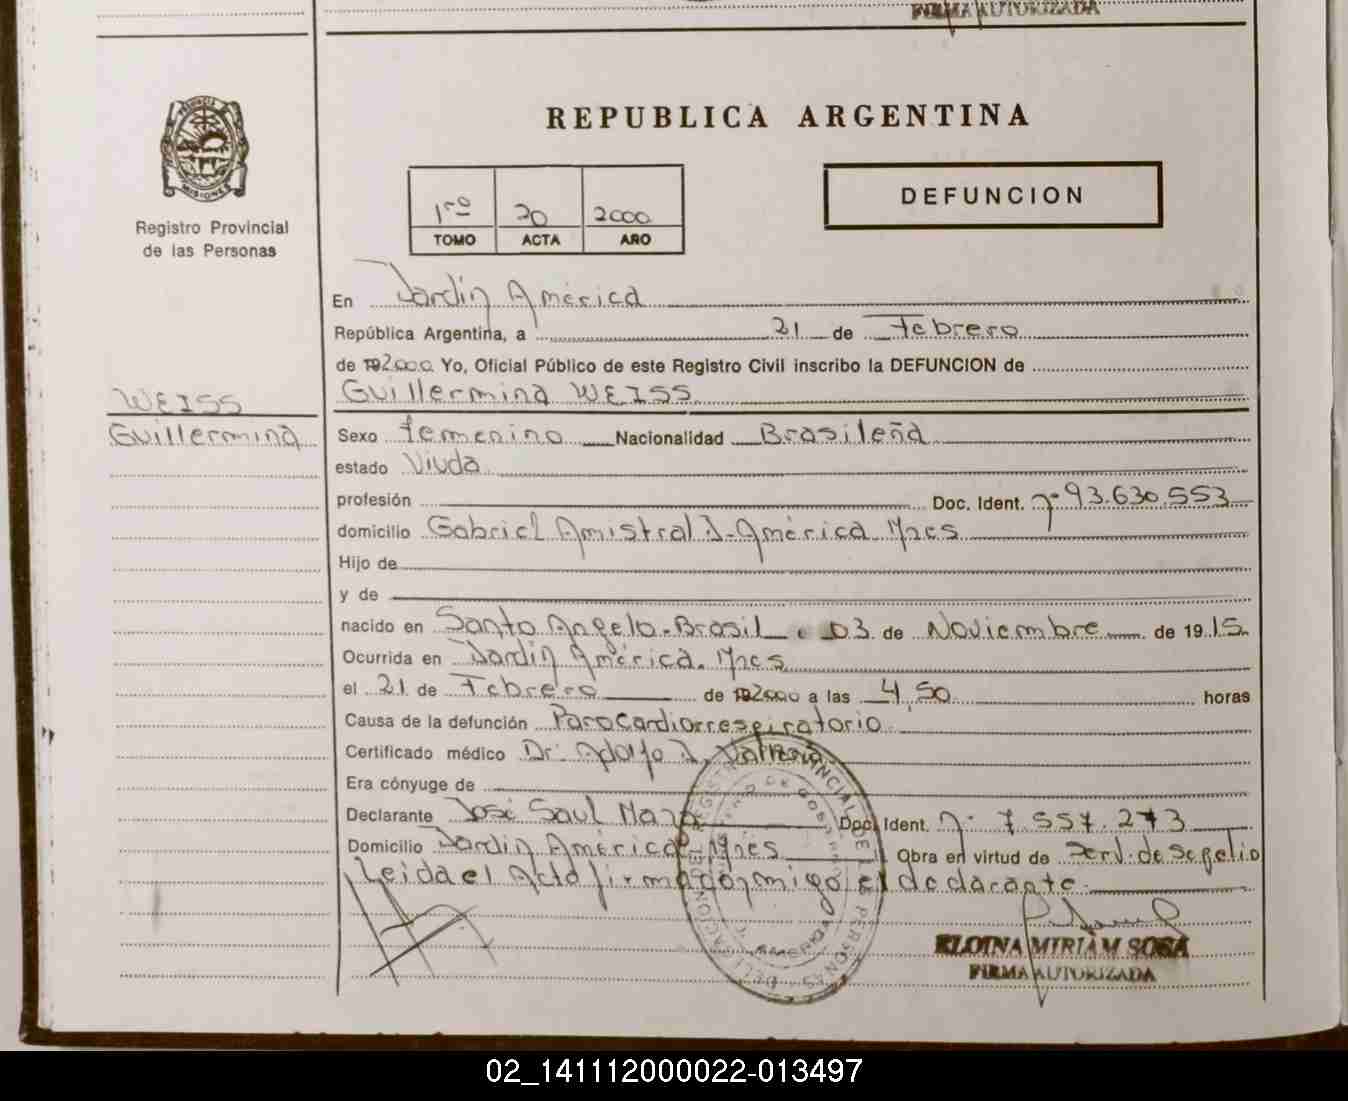 FIRMA AUTORIZADA
PROVINCIA DE MISIONES
Registro Provincial
de las Personas
REPUBLICA ARGENTINA
1ro 20 2000
TOMO ACTA AÑO
DEFUNCION
En Jardín América
República Argentina, a 21 de Febrero
de 2000 Yo, Oficial Público de este Registro Civil inscribo la DEFUNCION de
Guillermina WEISS
WEISS
Guillermina
Sexo femenino Nacionalidad Brasileña
estado Viuda
profesión Doc. Ident. nº 93.630.553
domicilio Gabriel Amistral J. América Mnes
Hijo de
y de
nacido en Santo Angelo-Brasil e 03 de Noviembre de 1915
Ocurrida en Jardín América. Mnes
el 21 de Febrero de 2000 a las 4,50 horas
Causa de la defunción Parocardiorrespiratorio
Certificado médico Dr. Adolfo J.
Era cónyuge de
Declarante José Saul Doc. Ident. nº 7.557.273
Domicilio Jardín América Mnes Obra en virtud de Serv. de Sepelio
Leida el Acta firma conmigo el declarante
ELOINA MIRIAM SOSA
FIRMA AUTORIZADA
02_141112000022-013497